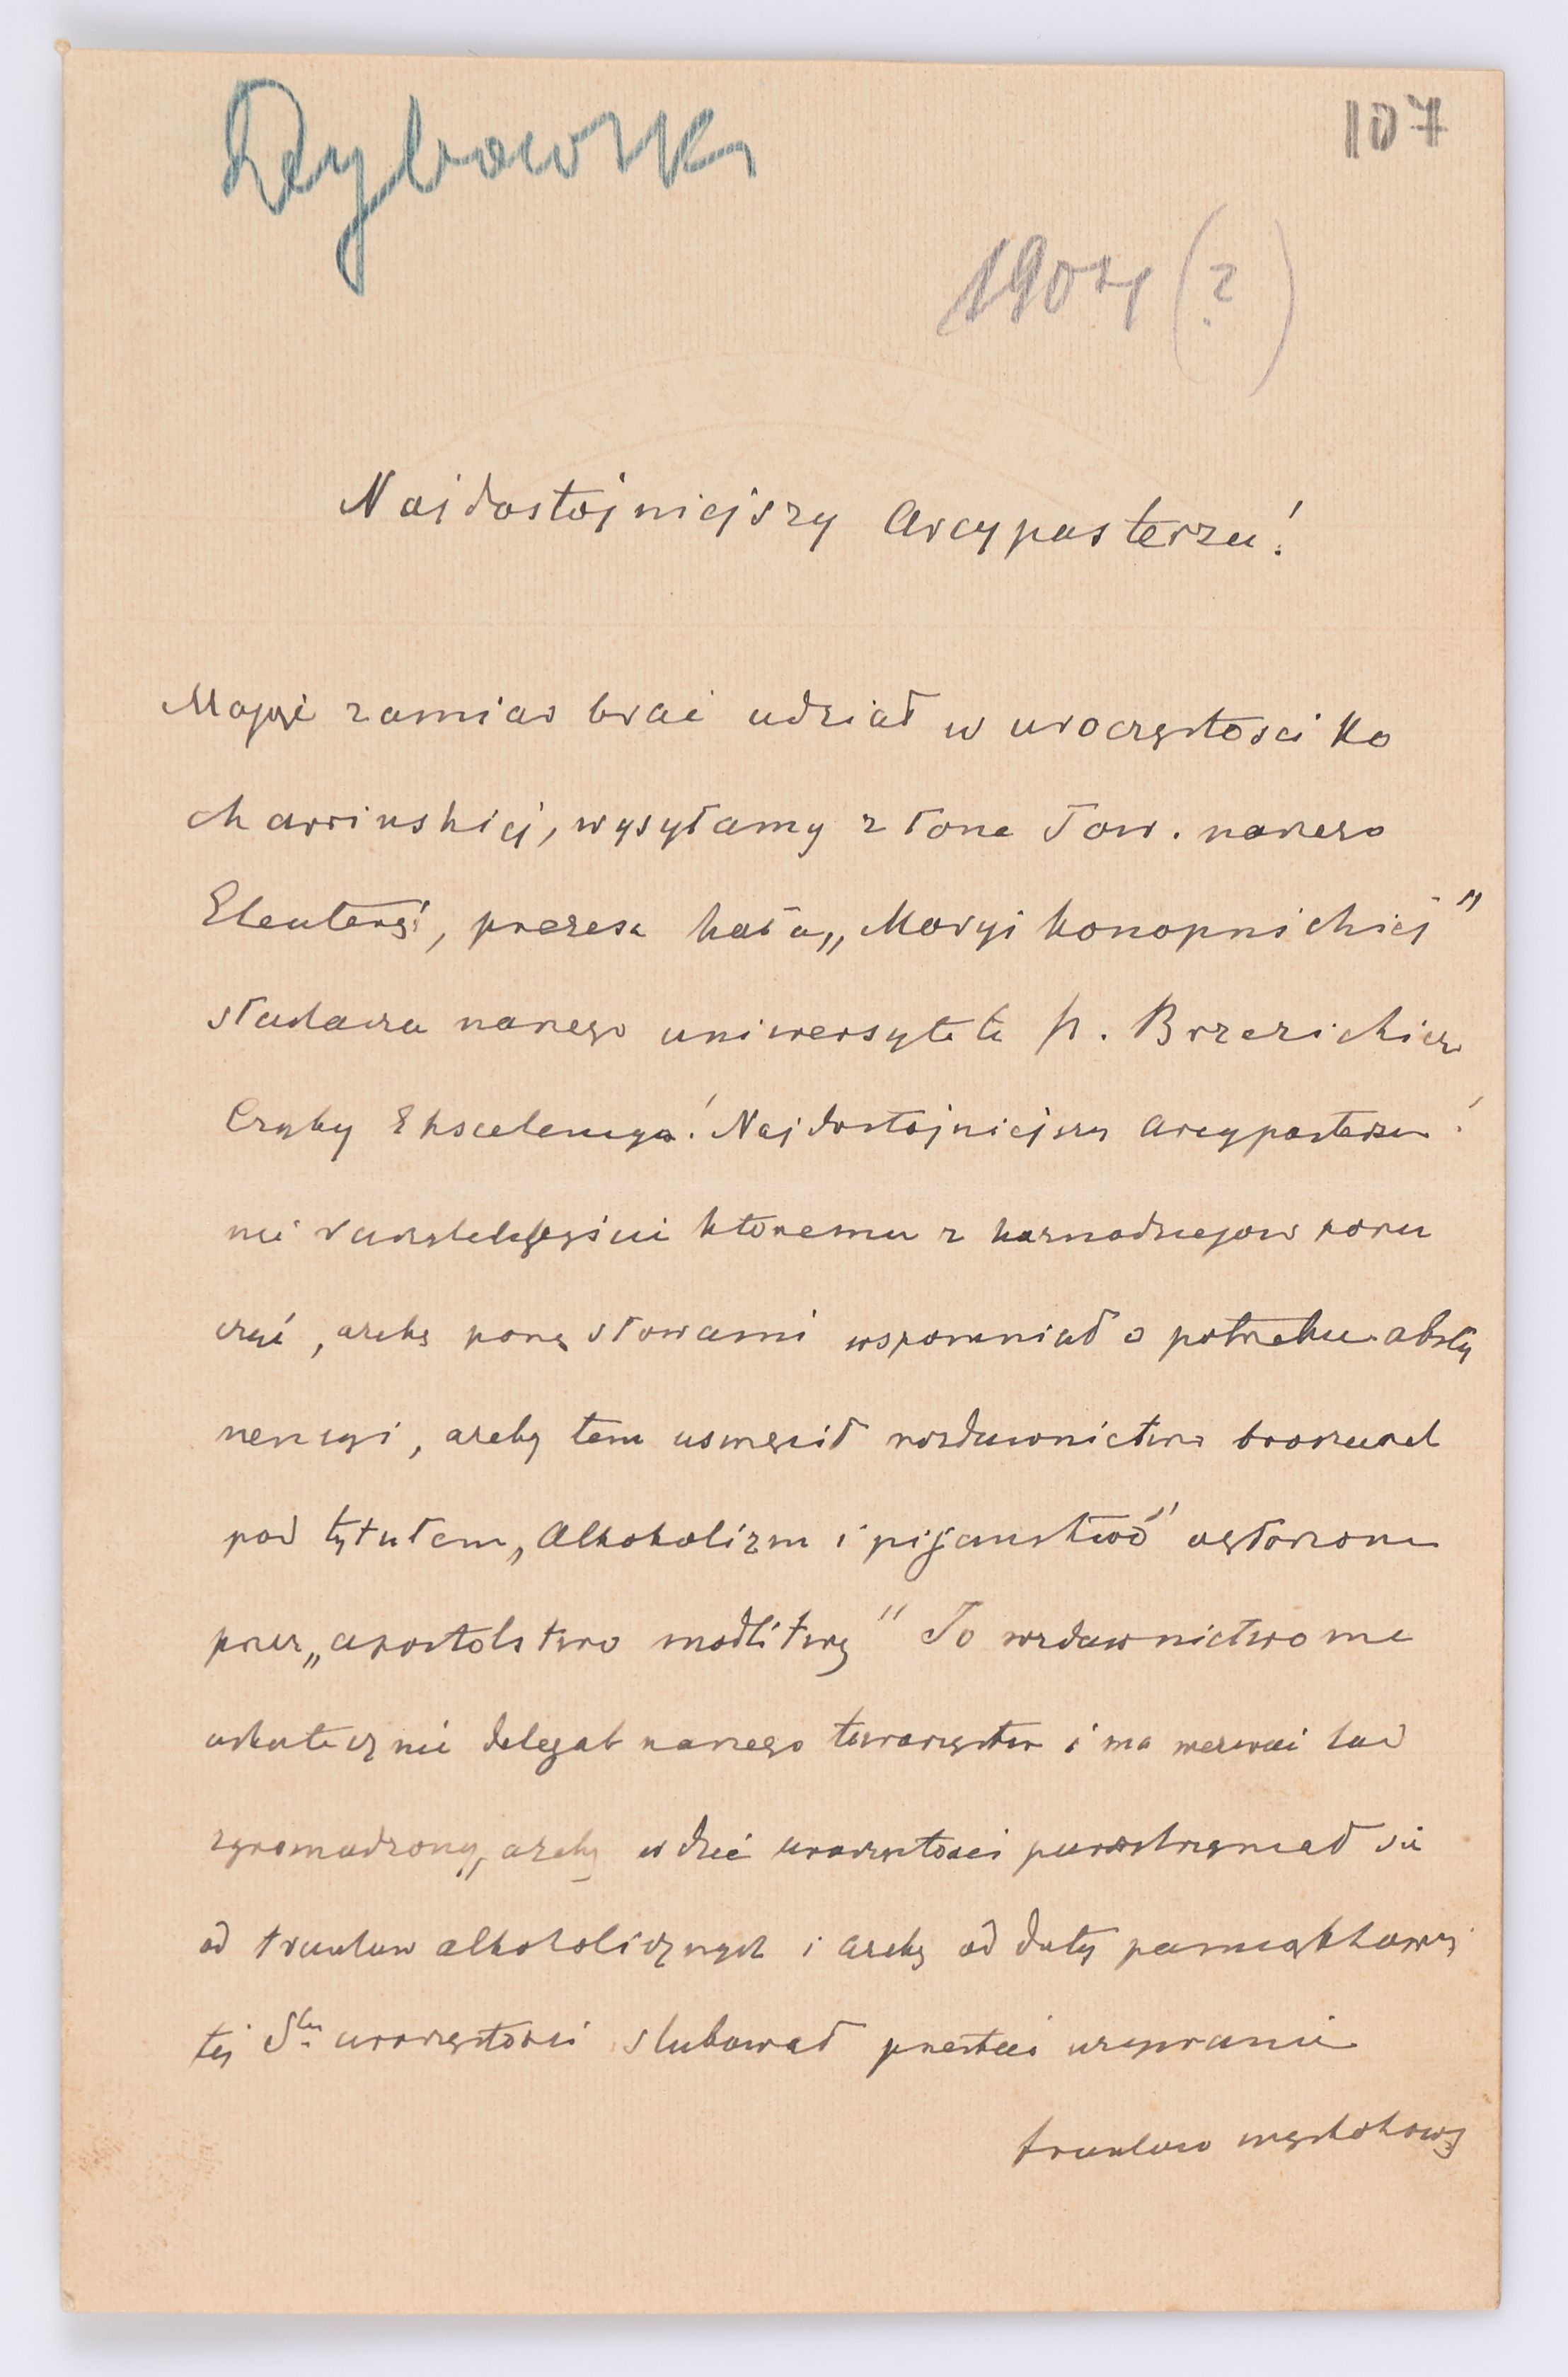 Dybowski
107
1904 (?)
Najdostojniejszy Arcypasterzu!
Mając zamiar brać udział w uroczystosci Ko
chawinskiej, wysyłamy z łona Tow. naszego
Eleuteryi, prezesa koła „Maryi Konopnickiej”
słuchacza naszego uniwersytetu p. Brzezickiego
Czyby Ekscelencya! Najdostojniejszy Arcypasterzu!
nie któremu z kaznodziejow poru
czyć, azeby parę słowami wspomniał o potrzebie absty
nencyi, azeby tem uswięcił rozdawnictwo broszurek
pod tytułem „Alkoholizm i pijaństwo” ogłoszone
przez „apostolstwo modlitwy” To rozdawnictwo ma
uskutecznić delegat naszego towarzystwa i ma wezwać lud
zgromadzony, azeby w dzień uroczystości powstrzymał się
od trunkow alkoholicznych i azeby od daty pamiątkowej
tej uroczystosci slubował przestać uzywania
trunkow wyskokowy